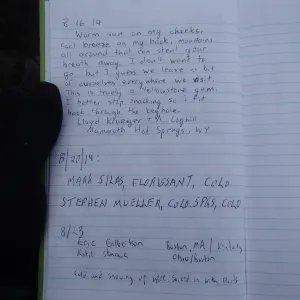 8 16 14
Warm sun on my cheeks,
cool breeze on my back, mountains
all around that can steal your
breath away. I don't want to
go but I guess we leave a bit
of ourselves every where we visit.
This is truely a Yellowstone gem.
I better stop snacking so I fit
back through the keyhole.
Lloyd Krueger + M.
Mammoth Hot Springs, WY
8/20/14:
MARK SILAS, FLORISSANT, COLO
STEPHEN MUELLER, COLO. SPGS, COLO
8/23
Eric
Boston, MA /
Cold wet